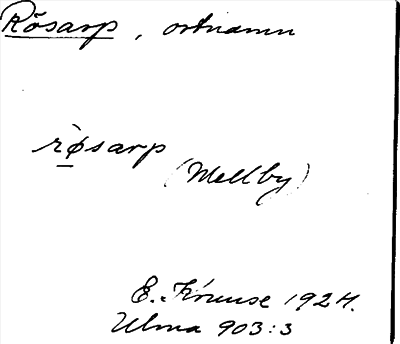 Rösarp, ortnamn
rø̀sarp
(Mellby)
E. Kruuse 1924.
Ulma 903:3